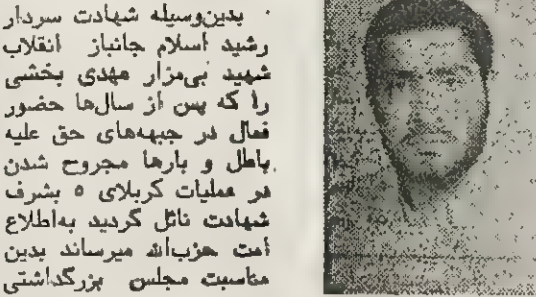 بدین‌وسیله شهادت سردار
رشید اسلام جانباز انقلاب
شهید بی‌مزار مهدی بخشی
را که پس از سال‌ها حضور
فعال در جبهه‌های حق علیه
باطل و بارها مجروح شدن
در عملیات کربلای ۵ بشرف
شهادت نائل گردید به‌اطلاع
امت حزب‌الله میرساند بدین
مناسبت مجلس بزرگداشتی